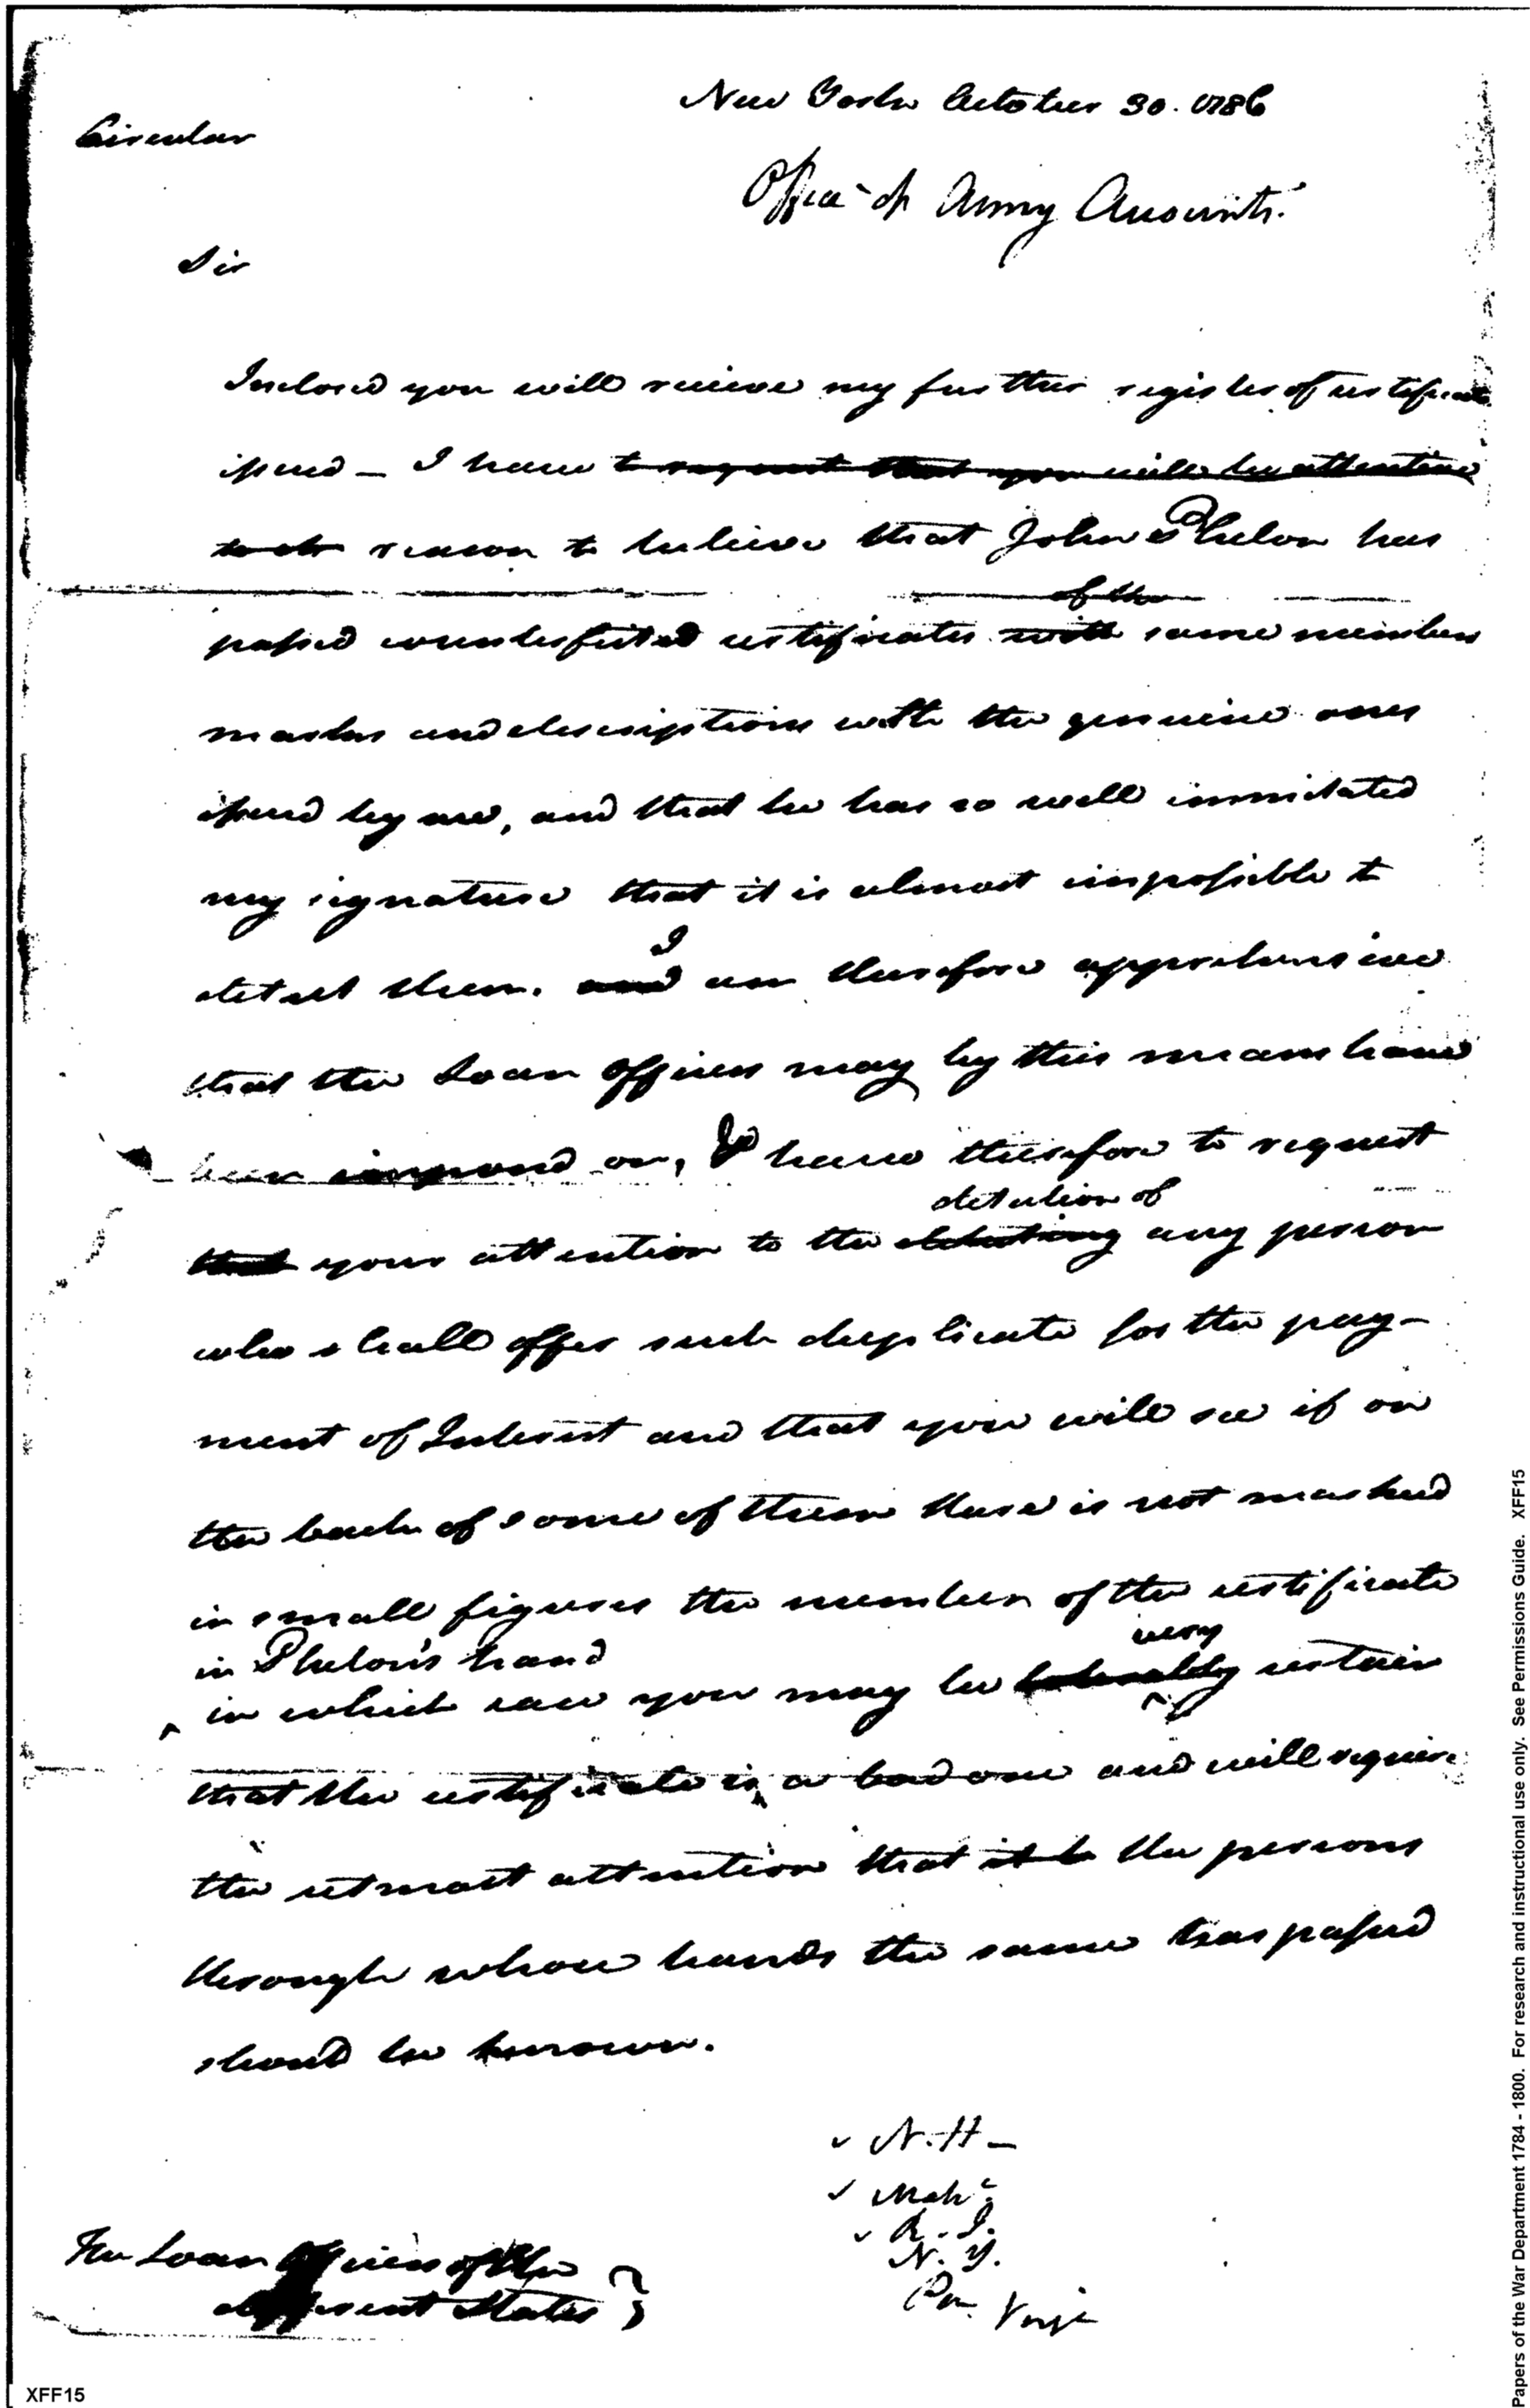 New York October 30. 1786
Circular
Office of Army Accounts.
Sir
Inclosed you will recieve my further register of certificates
issued — I have to request that you will be attentive
reason to believe that John Phelon has
of the
passed counterfeited certificates with same numbers
marks and descriptions with the genuine ones
issued by me, and that he has so well immitated
my signature that it is almost impossible to
I
detect them. and am therefore apprehensive
that the Loan Officers may by this means have
been imposed on, I have therefore to request
detection of
that your attention to the detecting any person
who shall offer such duplicate for the pay-
ment of Interest and that you will see if on
the back of some of them there is not marked
in small figures the number of the certificate
in Phelon's hand
very
in which case you may be tolerably certain
that the certificate is a bad one and will require
the utmost attention that it b the persons
through whose hands the same has passed
should be known.
N. H —
R. I.
The Loan Officers of the
N. Y.
different States
Pen. Virga
XFF15
Papers of the War Department 1784 - 1800. For research and instructional use only. See Permissions Guide. XFF15